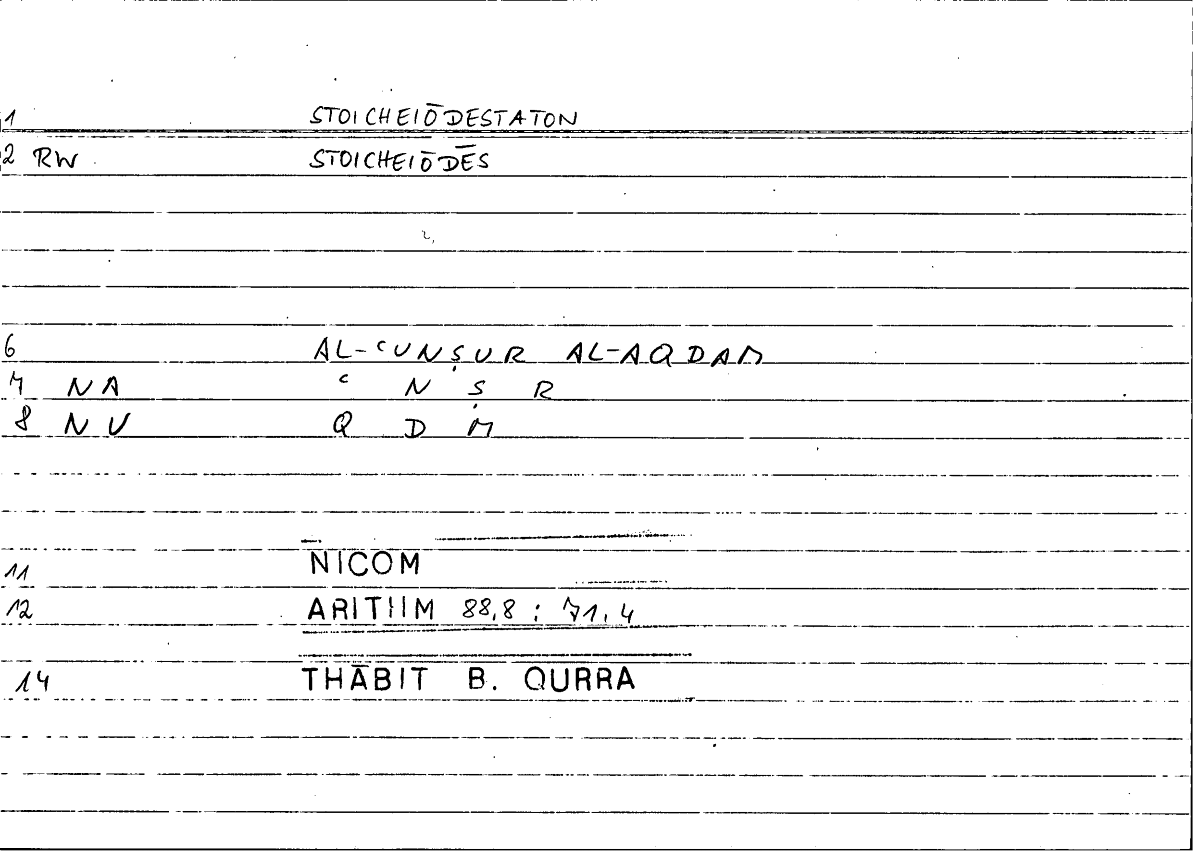 1 STOICHEIŌDESTATON
2 RW STOICHEIŌDĒS
6 AL-ʿUNṢUR AL-AQDAM
7 NA ʿ N Ṣ R
8 NV Q D M
11 NICOM
12 ARITHM 88,8 ; 71,4
14 THĀBIT B. QURRA